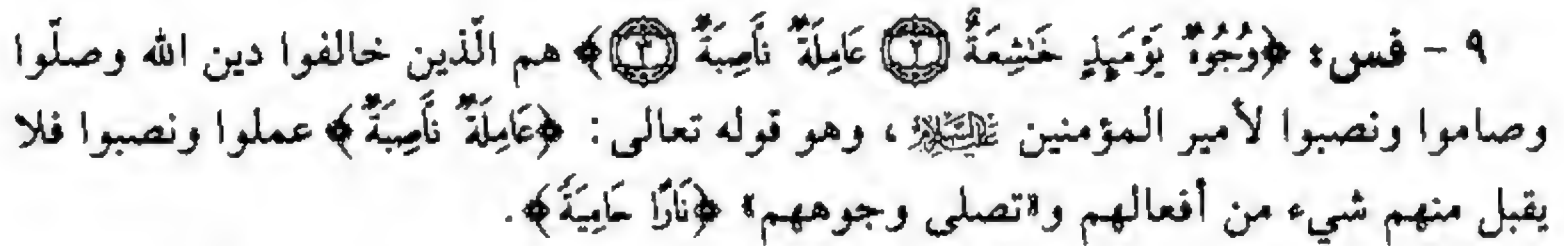 ٩ - فس: ﴿وُجُوهٌ يَوْمَئِذٍ خَاشِعَةٌ ﴿٢﴾ عَامِلَةٌ نَاصِبَةٌ ﴿٣﴾﴾ هم الّذين خالفوا دين الله وصلّوا
وصاموا ونصبوا لأمير المؤمنين عليه السلام، وهو قوله تعالى: ﴿عَامِلَةٌ نَاصِبَةٌ﴾ عملوا ونصبوا فلا
يقبل منهم شيء من أفعالهم و«تصلى وجوههم» ﴿نَارًا حَامِيَةً﴾.